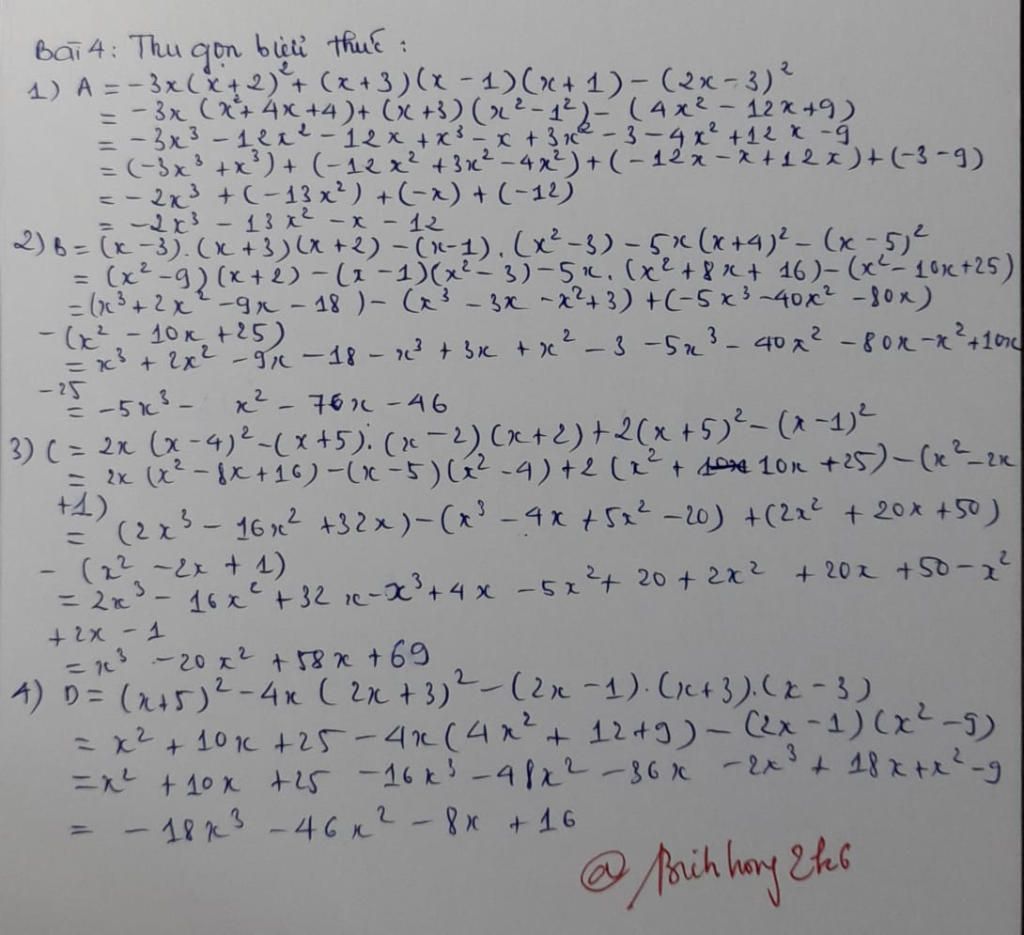 Bài 4: Thu gọn biểu thức :
1) A = -3x(x+2)² + (x+3)(x-1)(x+1) - (2x-3)²
= -3x (x²+4x+4)+(x+3)(x²-1²)-(4x²-12x+9)
= -3x³-12x²-12x+x³-x+3x²-3-4x²+12x-9
= (-3x³+x³)+(-12x²+3x²-4x²)+(-12x-x+12x)+(-3-9)
= -2x³+(-13x²)+(-x)+(-12)
= -2x³-13x²-x-12
2) B = (x-3).(x+3)(x+2)-(x-1).(x²-3)-5x(x+4)²-(x-5)²
= (x²-9)(x+2)-(x-1)(x²-3)-5x.(x²+8x+16)-(x²-10x+25)
= (x³+2x²-9x-18)-(x³-3x-x²+3)+(-5x³-40x²-80x)
-(x²-10x+25)
= x³+2x²-9x-18-x³+3x+x²-3-5x³-40x²-80x-x²+10x
-25
= -5x³- x²-76x-46
3) C = 2x(x-4)²-(x+5).(x-2)(x+2)+2(x+5)²-(x-1)²
= 2x(x²-8x+16)-(x-5)(x²-4)+2(x²+10x 10x+25)-(x²-2x
+1)
= (2x³-16x²+32x)-(x³-4x+5x²-20)+(2x²+20x+50)
-(x²-2x+1)
= 2x³-16x²+32x-x³+4x-5x²+20+2x²+20x+50-x²
+2x-1
= x³-20x²+58x+69
4) D = (x+5)²-4x(2x+3)²-(2x-1).(x+3).(x-3)
= x²+10x+25-4x(4x²+12+9)-(2x-1)(x²-9)
= x²+10x+25-16x³-48x²-36x-2x³+18x+x²-9
= -18x³-46x²-8x+16
@Bichhong2k6